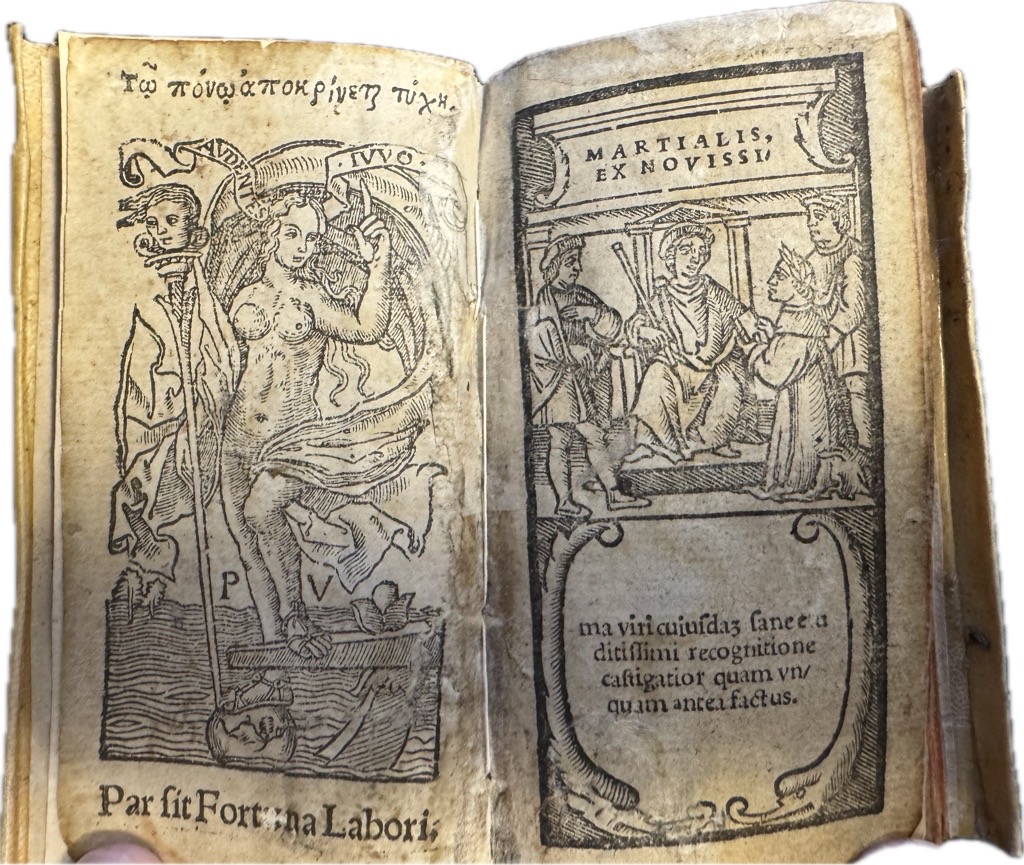 Τῷ πόνῳ ἀποκρίνεται τύχη.
AUDEN
·IVVO·
P V
Par ſit Fortuna Labori;
MARTIALIS,
EX NOVISSI/
ma viri cuiuſdaꝫ ſane eru
ditiſſimi recognitione
caſtigatior quam vn/
quam antea factus.